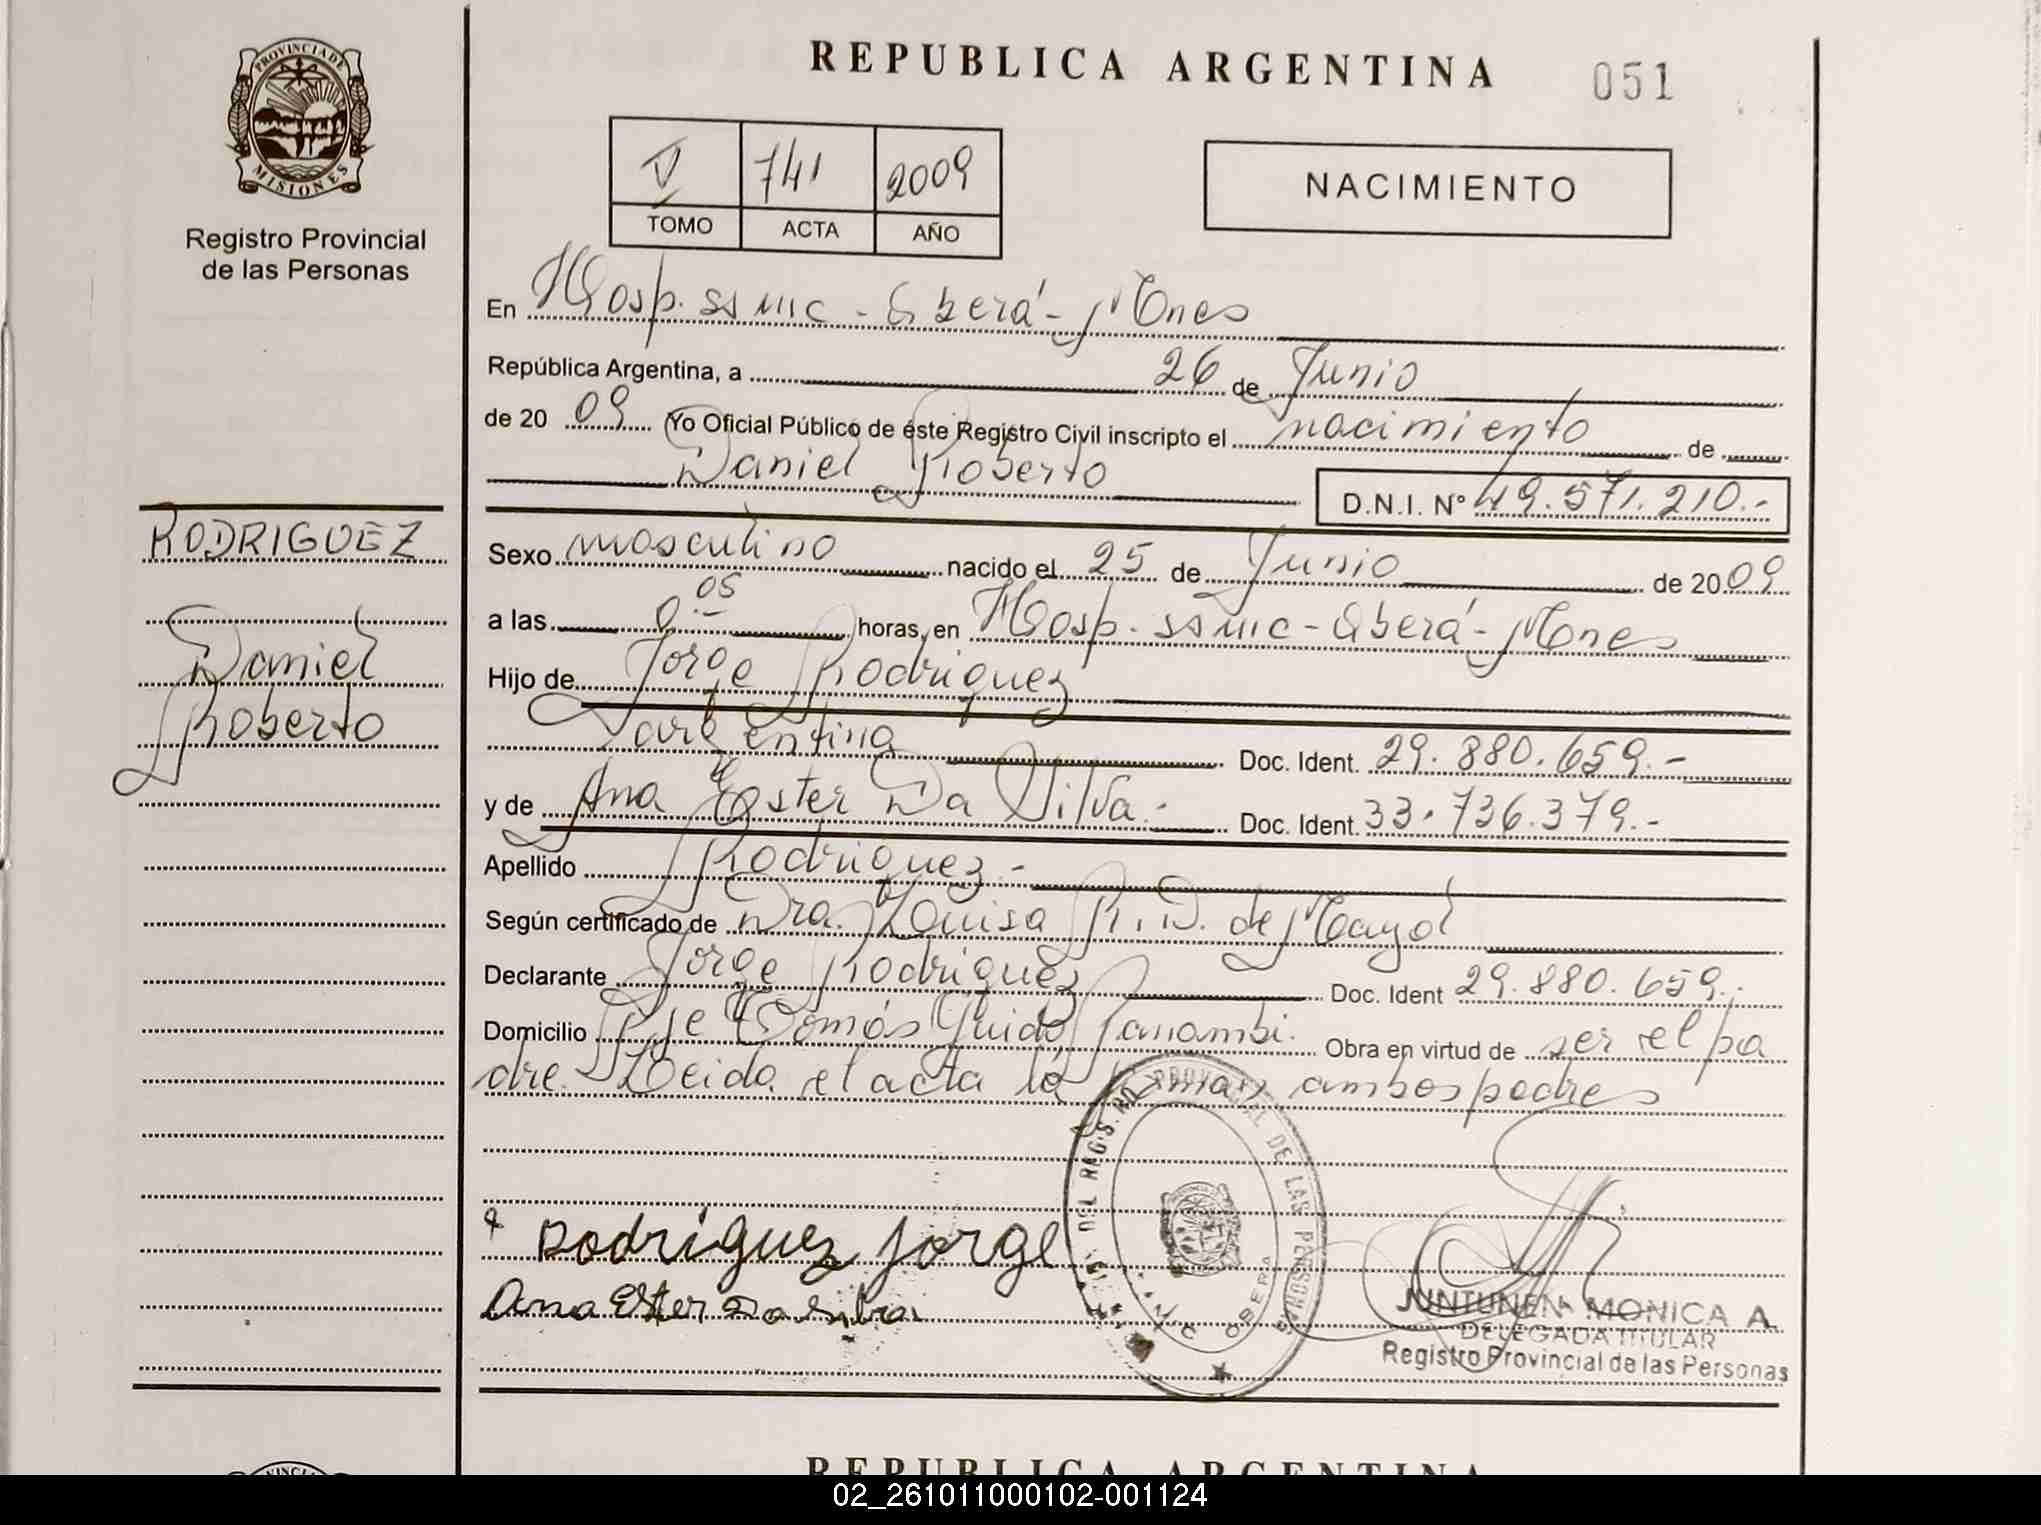 REPUBLICA ARGENTINA
051
PROVINCIA DE
MISIONES
Registro Provincial
de las Personas
V 741 2009
TOMO ACTA AÑO
NACIMIENTO
En Hosp. SSMIC - Oberá - Mones
República Argentina, a 26 de Junio
de 20 09 Yo Oficial Público de éste Registro Civil inscripto el nacimiento de
Daniel Roberto
D.N.I. Nº 49.571.210.-
RODRIGUEZ
Daniel
Roberto
Sexo masculino nacido el 25 de Junio de 20 09
a las 0.05 horas, en Hosp. SSMIC - Oberá - Mones
Hijo de Jorge Rodriguez
argentina Doc. Ident. 29.880.659.-
y de Ana Ester Da Silva.- Doc. Ident. 33.736.379.-
Apellido Rodriguez.-
Según certificado de Dra. Louisa R. D. de Mayol
Declarante Jorge Rodriguez Doc. Ident 29.880.659.-
Domicilio Pje Tomás Guido Panambi. Obra en virtud de ser el pa
dre. Leida el acta la firman ambos padres
Rodríguez Jorge
Ana Ester Da Silva
PROVINCIAL DE LAS PERSONAS
OBERA
JUNTUNEN MONICA A.
DELEGADA TITULAR
Registro Provincial de las Personas
REPUBLICA ARGENTINA
02_261011000102-001124